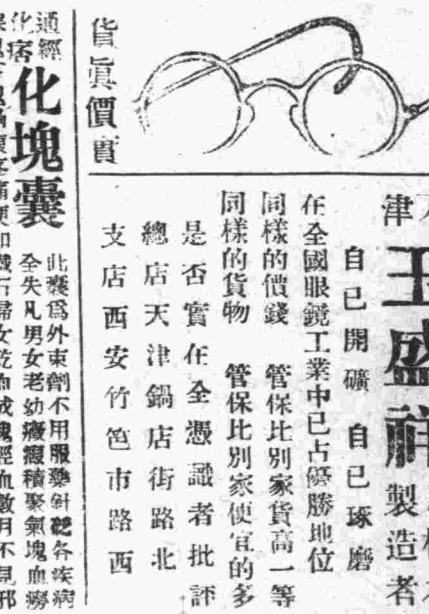 貨真價實
津
玉盛祥
製造者
自己開礦 自己琢磨
在全國眼鏡工業中已占優勝地位
同樣的價錢 管保比別家貨高一等
同樣的貨物 管保比別家便宜的多
是否實在全憑識者批評
總店天津鍋店街路北
支店西安竹笆市路西
通經化痞
化塊囊
此囊爲外束劑不用服藥針砭各疾病
全失凡男女老幼癥瘕積聚氣塊血癆
鐵石婦女乾血成塊經血數月不見邪